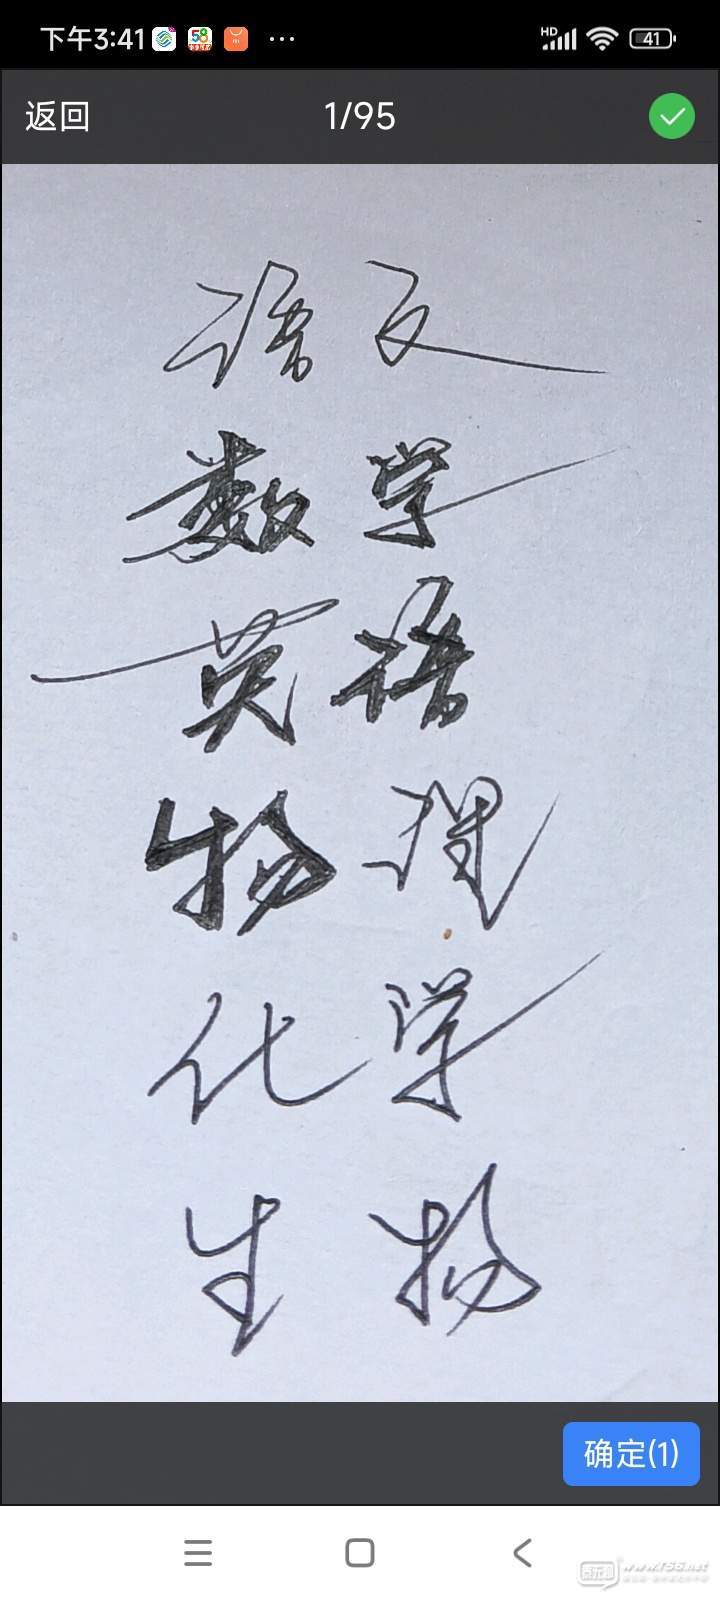 下午3:41 58 ... HD 41
返回 1/95
语文
数学
英语
物理
化学
生物
确定(1)
www.f58.net